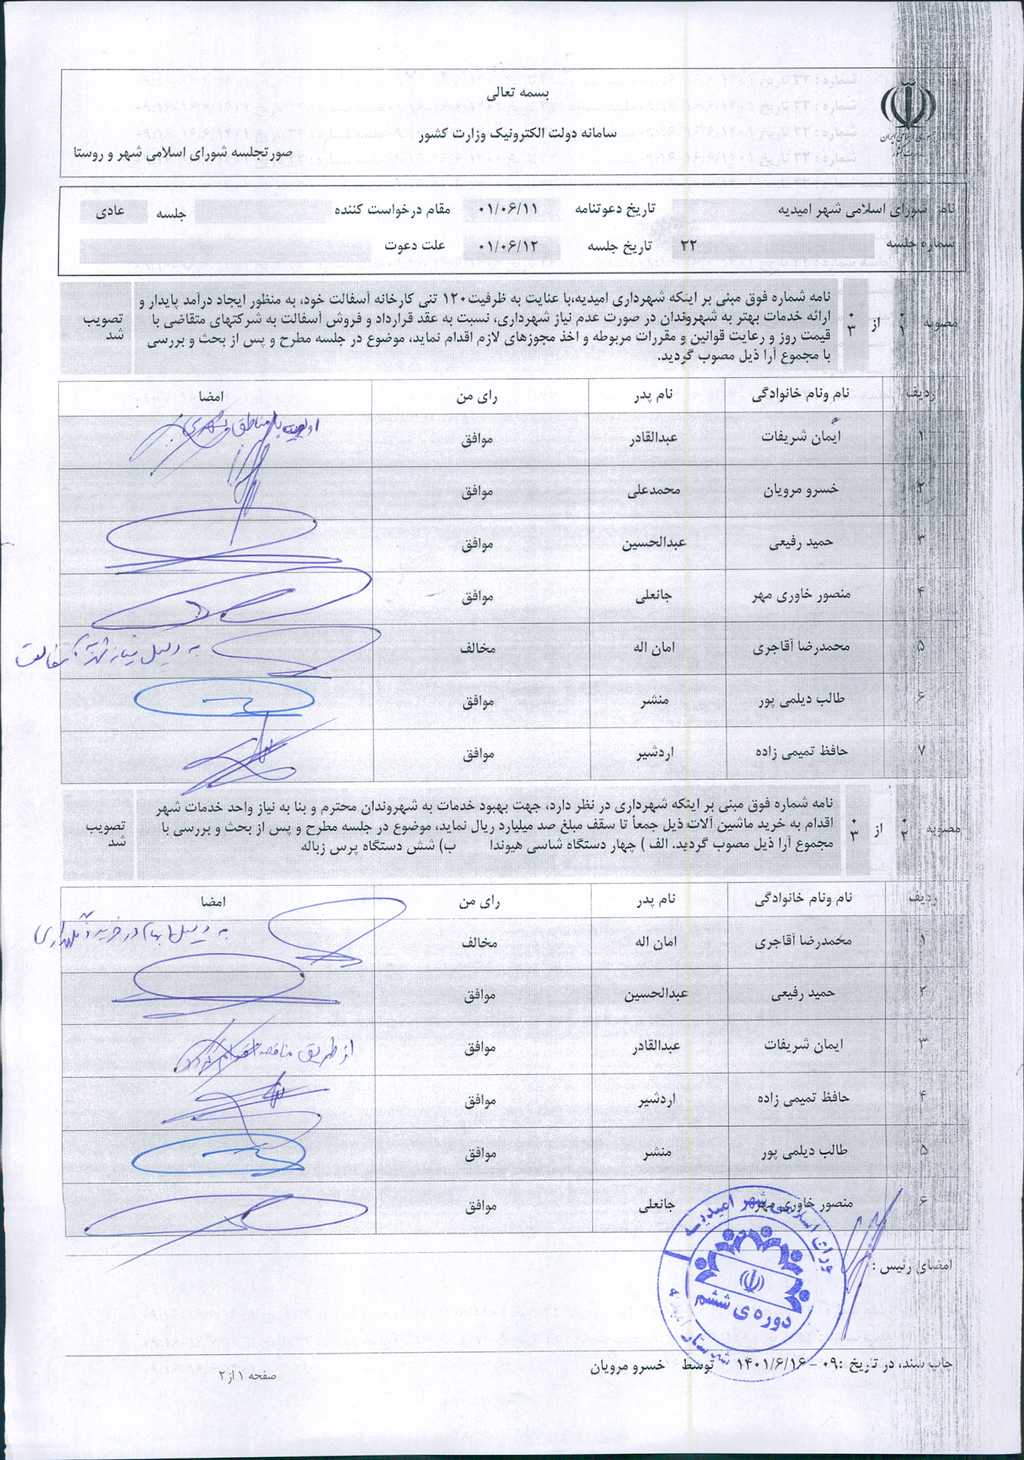 بسمه تعالی
سامانه دولت الکترونیک وزارت کشور
صورتجلسه شورای اسلامی شهر و روستا
نام شورای اسلامی شهر امیدیه تاریخ دعوتنامه ۰۱/۰۶/۱۱ مقام درخواست کننده جلسه عادی
شماره جلسه ۲۲ تاریخ جلسه ۰۱/۰۶/۱۲ علت دعوت
مصوبه ۰۱ از ۰۳
نامه شماره فوق مبنی بر اینکه شهرداری امیدیه،با عنایت به ظرفیت۱۲۰ تنی کارخانه آسفالت خود، به منظور ایجاد درآمد پایدار و
ارائه خدمات بهتر به شهروندان در صورت عدم نیاز شهرداری، نسبت به عقد قرارداد و فروش آسفالت به شرکتهای متقاضی با
قیمت روز و رعایت قوانین و مقررات مربوطه و اخذ مجوزهای لازم اقدام نماید، موضوع در جلسه مطرح و پس از بحث و بررسی
با مجموع آرا ذیل مصوب گردید.
تصویب شد
ردیف نام ونام خانوادگی نام پدر رای من امضا
۱ ایمان شریفات عبدالقادر موافق
۲ خسرو مرویان محمدعلی موافق
۳ حمید رفیعی عبدالحسین موافق
۴ منصور خاوری مهر جانعلی موافق
۵ محمدرضا آقاجری امان اله مخالف به دلیل نیاز شهر به آسفالت
۶ طالب دیلمی پور منشر موافق
۷ حافظ تمیمی زاده اردشیر موافق
مصوبه ۰۲ از ۰۳
نامه شماره فوق مبنی بر اینکه شهرداری در نظر دارد، جهت بهبود خدمات به شهروندان محترم و بنا به نیاز واحد خدمات شهر
اقدام به خرید ماشین آلات ذیل جمعاً تا سقف مبلغ صد میلیارد ریال نماید، موضوع در جلسه مطرح و پس از بحث و بررسی با
مجموع آرا ذیل مصوب گردید. الف ) چهار دستگاه شاسی هیوندا ب) شش دستگاه پرس زباله
تصویب شد
ردیف نام ونام خانوادگی نام پدر رای من امضا
۱ محمدرضا آقاجری امان اله مخالف به دلیل ابهام در خرید و نگهداری
۲ حمید رفیعی عبدالحسین موافق
۳ ایمان شریفات عبدالقادر موافق از طریق مناقصه اقدام گردد
۴ حافظ تمیمی زاده اردشیر موافق
۵ طالب دیلمی پور منشر موافق
۶ منصور خاوری مهر جانعلی موافق
امضای رئیس :
شورای اسلامی شهر امیدیه
دوره ی ششم
چاپ شند، در تاریخ :۰۹ - ۱۴۰۱/۶/۱۶ توسط خسرو مرویان
صفحه ۱ از ۲